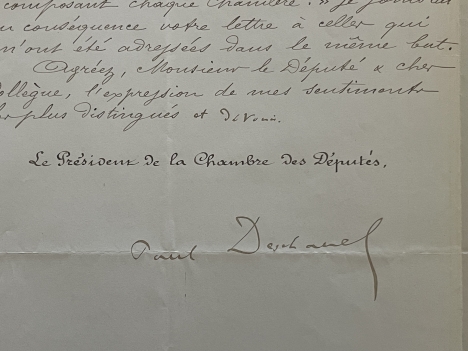 composant chaque Chambre. » Je joindrai
en conséquence votre lettre à celles qui
m'ont été adressées dans le même but.
Agréez, Monsieur le Député & cher
Collègue, l'expression de mes sentiments
les plus distingués et dévoués.
Le Président de la Chambre des Députés,
Paul Deschanel